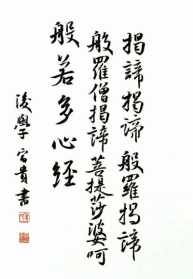 揭諦揭諦般羅揭諦
般羅僧揭諦菩提莎婆呵
般若多心經
後學富貴書